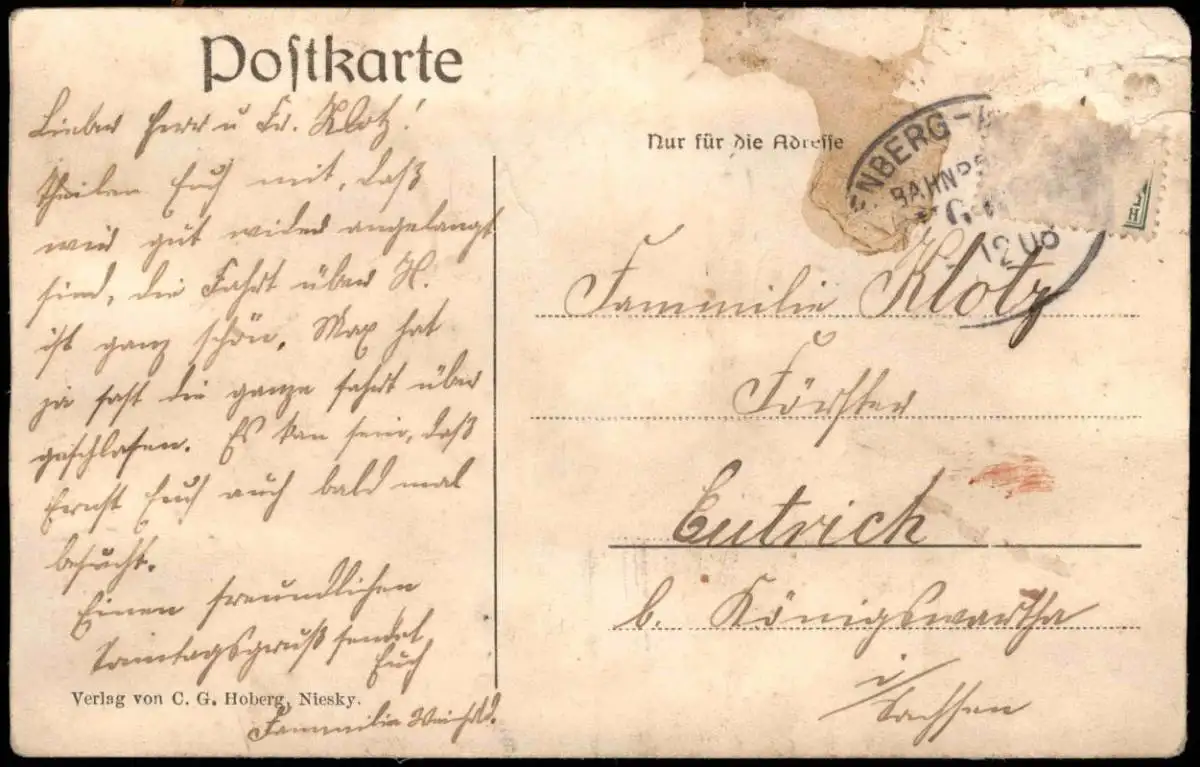 Postkarte
Lieber Herr u Fr. Klotz!
Theilen Euch mit, daß
wir gut wieder angelangt
sind, die Fahrt über N.
ist ganz schön, Max hat
ja fast die ganze fahrt über
geschlafen. Es kan sein, daß
Ernst Euch auch bald mal
besucht.
Einen freundlichen
Sonntagsgruß sendet
Euch
Verlag von C. G. Hoberg, Niesky.
Fammilie
Nur für die Adresse
ENBERG-
BAHNP
12 08
Fammilie Klotz
Förster
Eutrich
b. Königswartha
i/
Sachsen